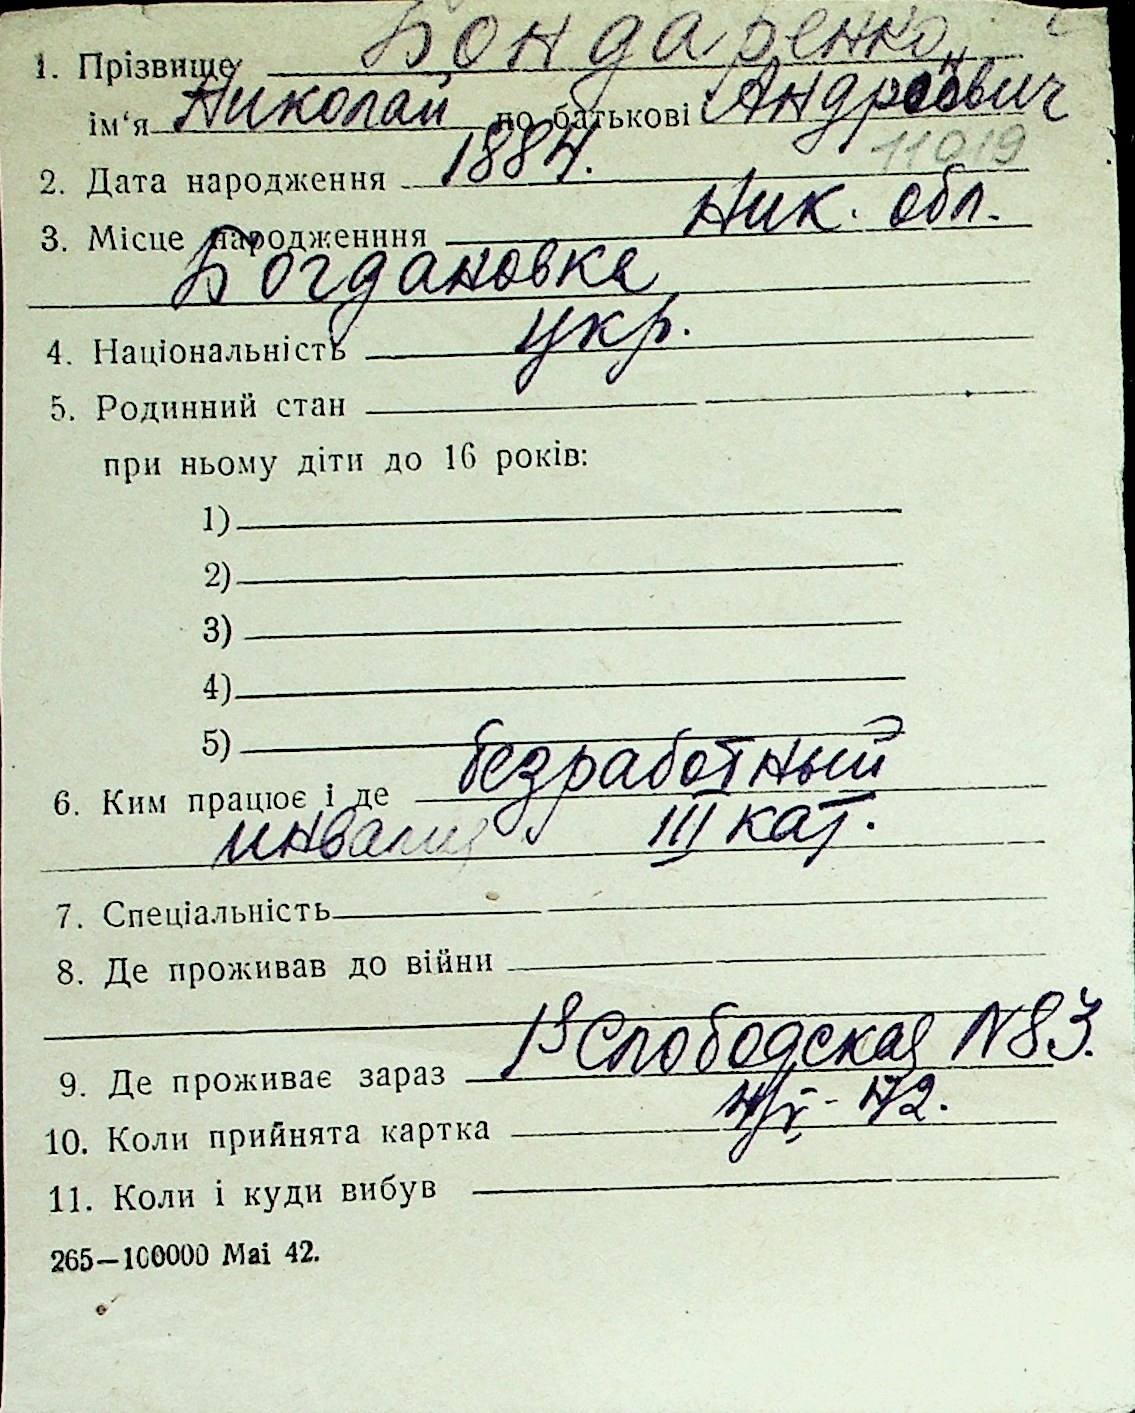 1. Прізвище Бондаренко
ім'я Николай по батькові Андреевич
11019
2. Дата народження 1884.
3. Місце народженння Ник. обл.
Богдановка
4. Національність укр.
5. Родинний стан
при ньому діти до 16 років:
1)
2)
3)
4)
5)
6. Ким працює і де безработный
инвалид III кат.
7. Спеціальність
8. Де проживав до війни
9. Де проживає зараз Слободская N 83.
10. Коли прийнята картка 42.
11. Коли і куди вибув
265—100000 Mai 42.